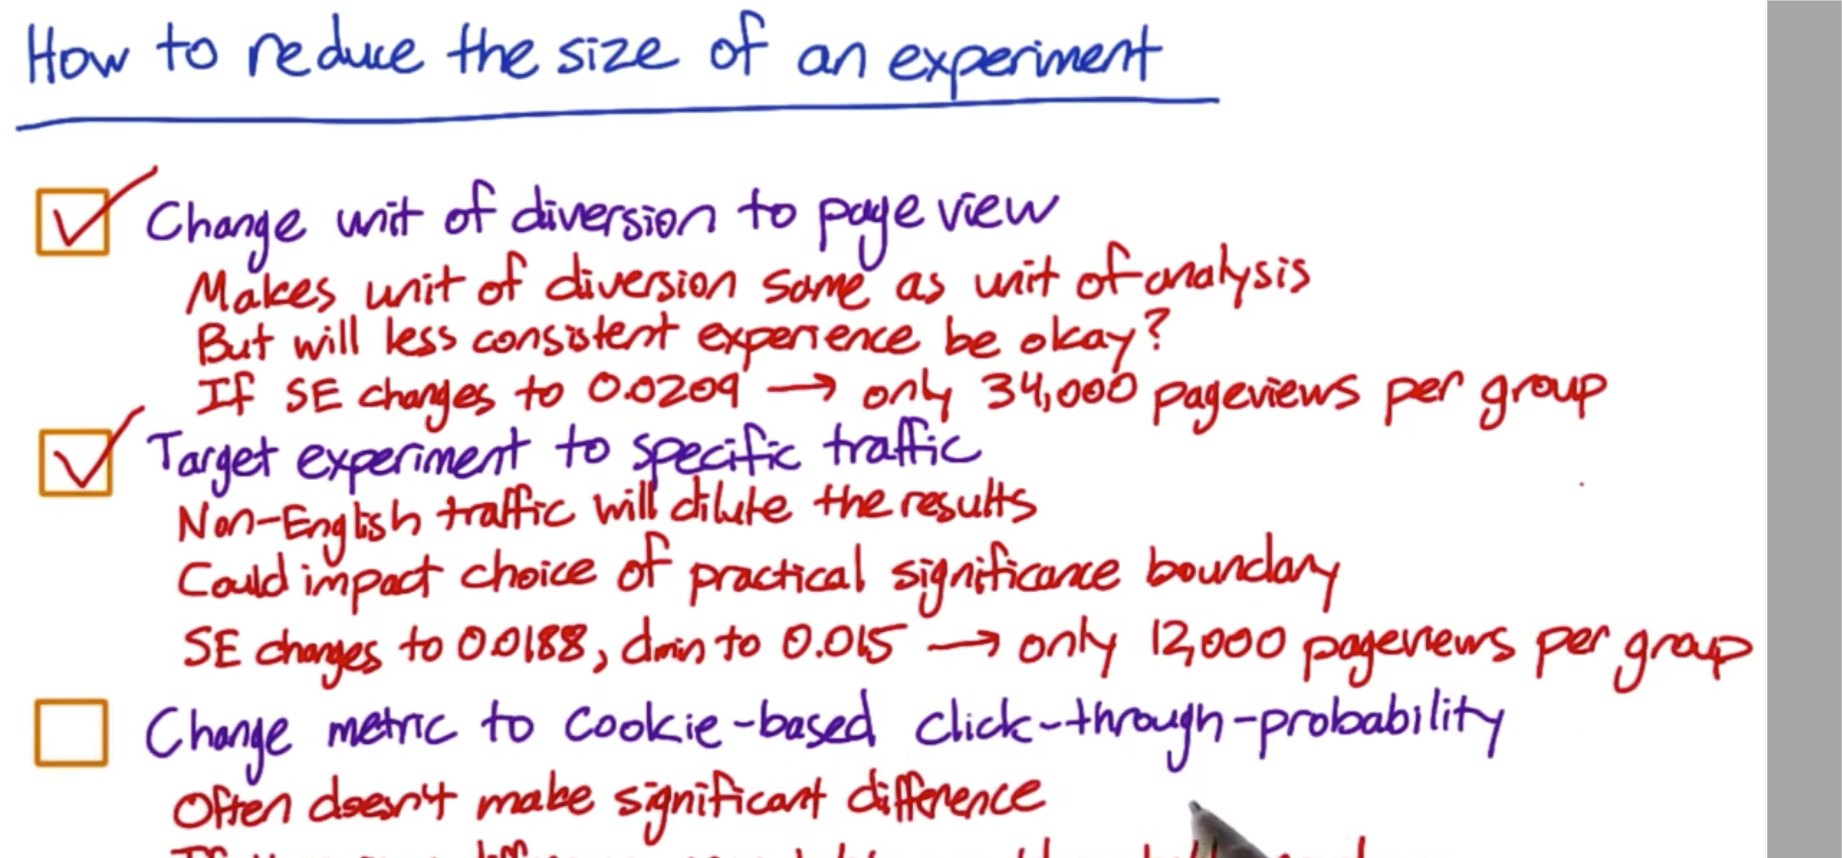 How to reduce the size of an experiment
Change unit of diversion to page view
Makes unit of diversion same as unit of analysis
But will less consistent experience be okay?
If SE changes to 0.0209 → only 34,000 pageviews per group
Target experiment to specific traffic
Non-English traffic will dilute the results
Could impact choice of practical significance boundary
SE changes to 0.0188, dmin to 0.015 → only 12,000 pageviews per group
Change metric to cookie-based click-through-probability
Often doesn't make significant difference